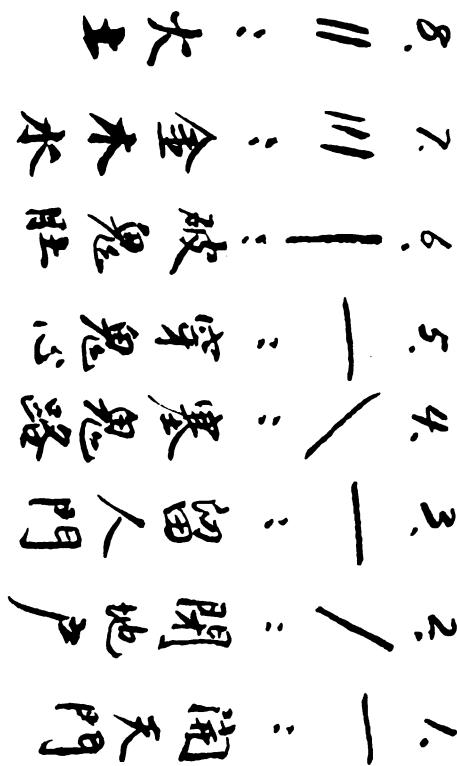 1. 一 : 開天門
2. / : 閉地戶
3. 一 : 留人門
4. \ : 塞鬼路
5. 一 : 穿鬼心
6. | : 破鬼肚
7. ||| : 金木水
8. || : 火土